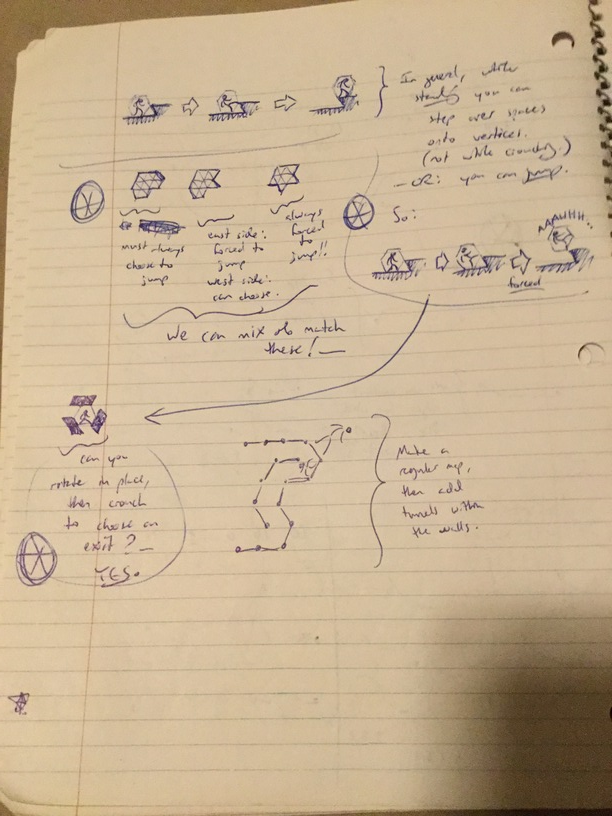 In general, while
standing you can
step over spaces
onto vertices.
(not while crouching.)
— OR: you can jump.
So:
AAAUHH..
forced
must always
choose to
jump
east side:
forced to
jump
west side:
can choose.
always
forced
to
jump!!
We can mix & match
these! —
can you
rotate in place,
then crouch
to choose an
exit? —
YES.
Make a
regular map,
then add
tunnels within
the walls.